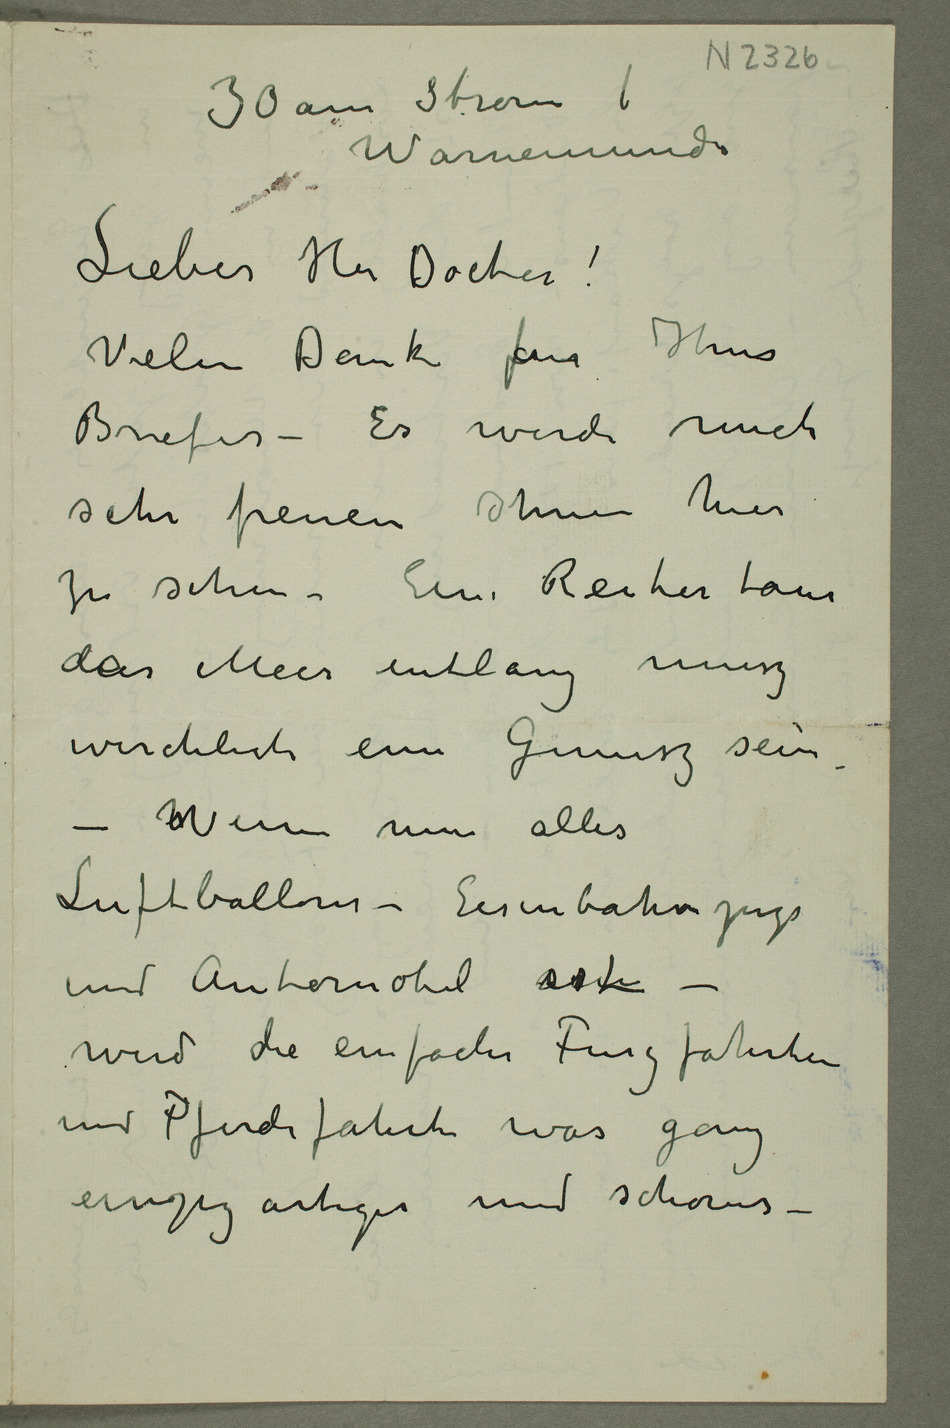 N 2326
30 am Strom 1
Warnemünde
Lieber Her Docter!
Vielen Danke fur Ihres
Briefes – Es wirde mich
sehr freuen Ihnen hier
zu sehen – Eine Reitertour
das Meer entlang musz
wirchlich ein Genusz sein –
– Wenn nun alles
Luftballons – Eisenbahnzuge
und Automobil ist –
wird die einfache Fuszfahrten
und Pferdefahrte was ganz
einzigartiges und schones –